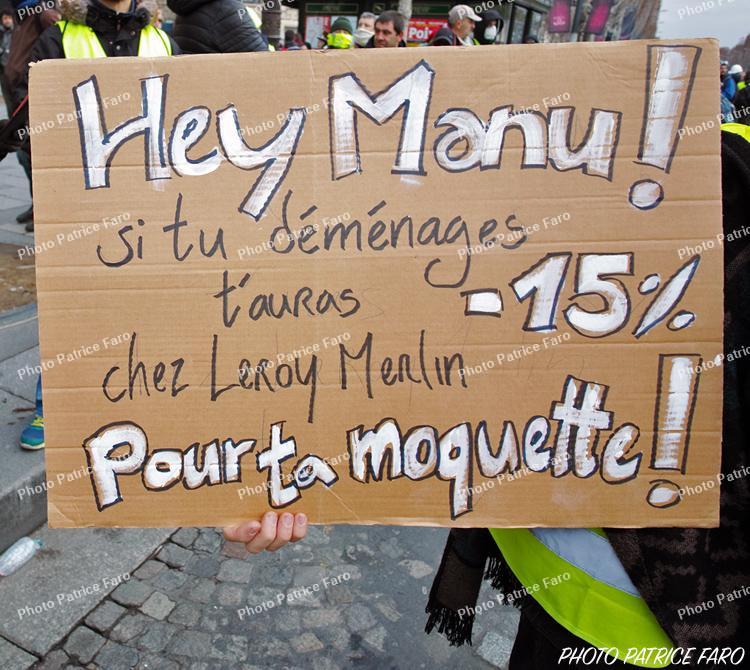 Hey Manu !
si tu déménages
t'auras -15%
chez Leroy Merlin
Pour ta moquette !
PHOTO PATRICE FARO